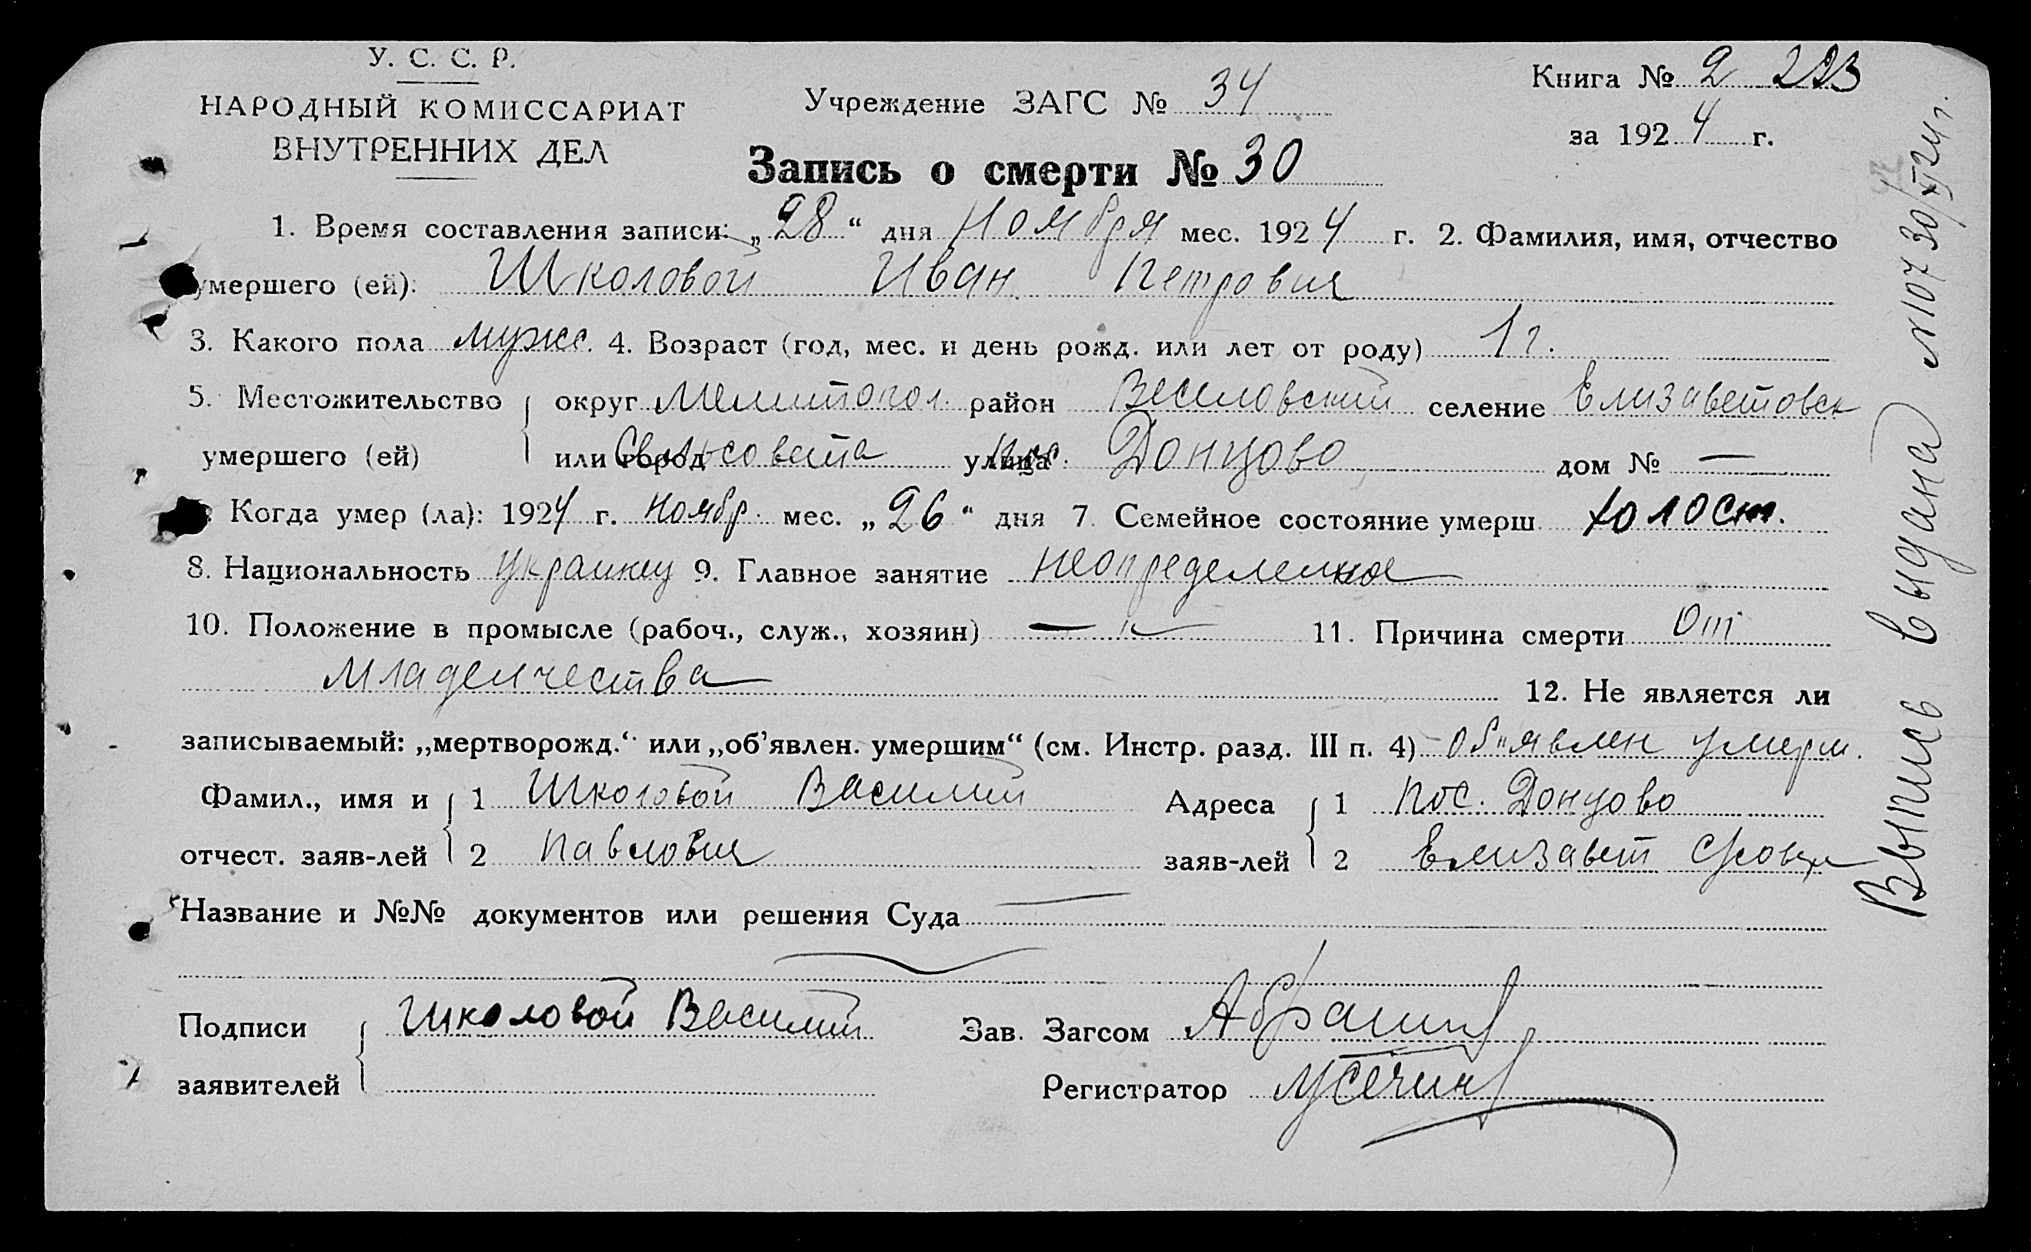 У. С. С. Р.
НАРОДНЫЙ КОМИССАРИАТ
ВНУТРЕННИХ ДЕЛ
Учреждение ЗАГС № 34
Книга № 2 223
за 1924 г.
Запись о смерти № 30
1. Время составления записи: „28“ дня Ноября мес. 1924 г. 2. Фамилия, имя, отчество
умершего (ей): Школовой Иван Петровия
3. Какого пола мужс. 4. Возраст (год, мес. и день рожд. или лет от роду) 1 г.
5. Местожительство округ Мелитопол. район Веселовский селение Елизаветовск
умершего (ей) или город Сельсовета улица пос. Донцово дом № —
Когда умер (ла): 1924 г. Ноябр. мес. „26“ дня 7. Семейное состояние умерш. холост.
8. Национальность украинец 9. Главное занятие неопределенное
10. Положение в промысле (рабоч., служ., хозяин) — 11. Причина смерти От
младенчества 12. Не является ли
записываемый: „мертворожд.“ или „об’явлен. умершим“ (см. Инстр. разд. III п. 4) об"явлен умерш.
Фамил., имя и 1 Школовой Василий Адреса 1 пос. Донцово
отчест. заяв-лей 2 Павловия заяв-лей 2 Елизавет
Название и №№ документов или решения Суда —
Подписи Школовой Василий Зав. Загсом
заявителей Регистратор
Выпись выдана №107 30/XI 24 г.